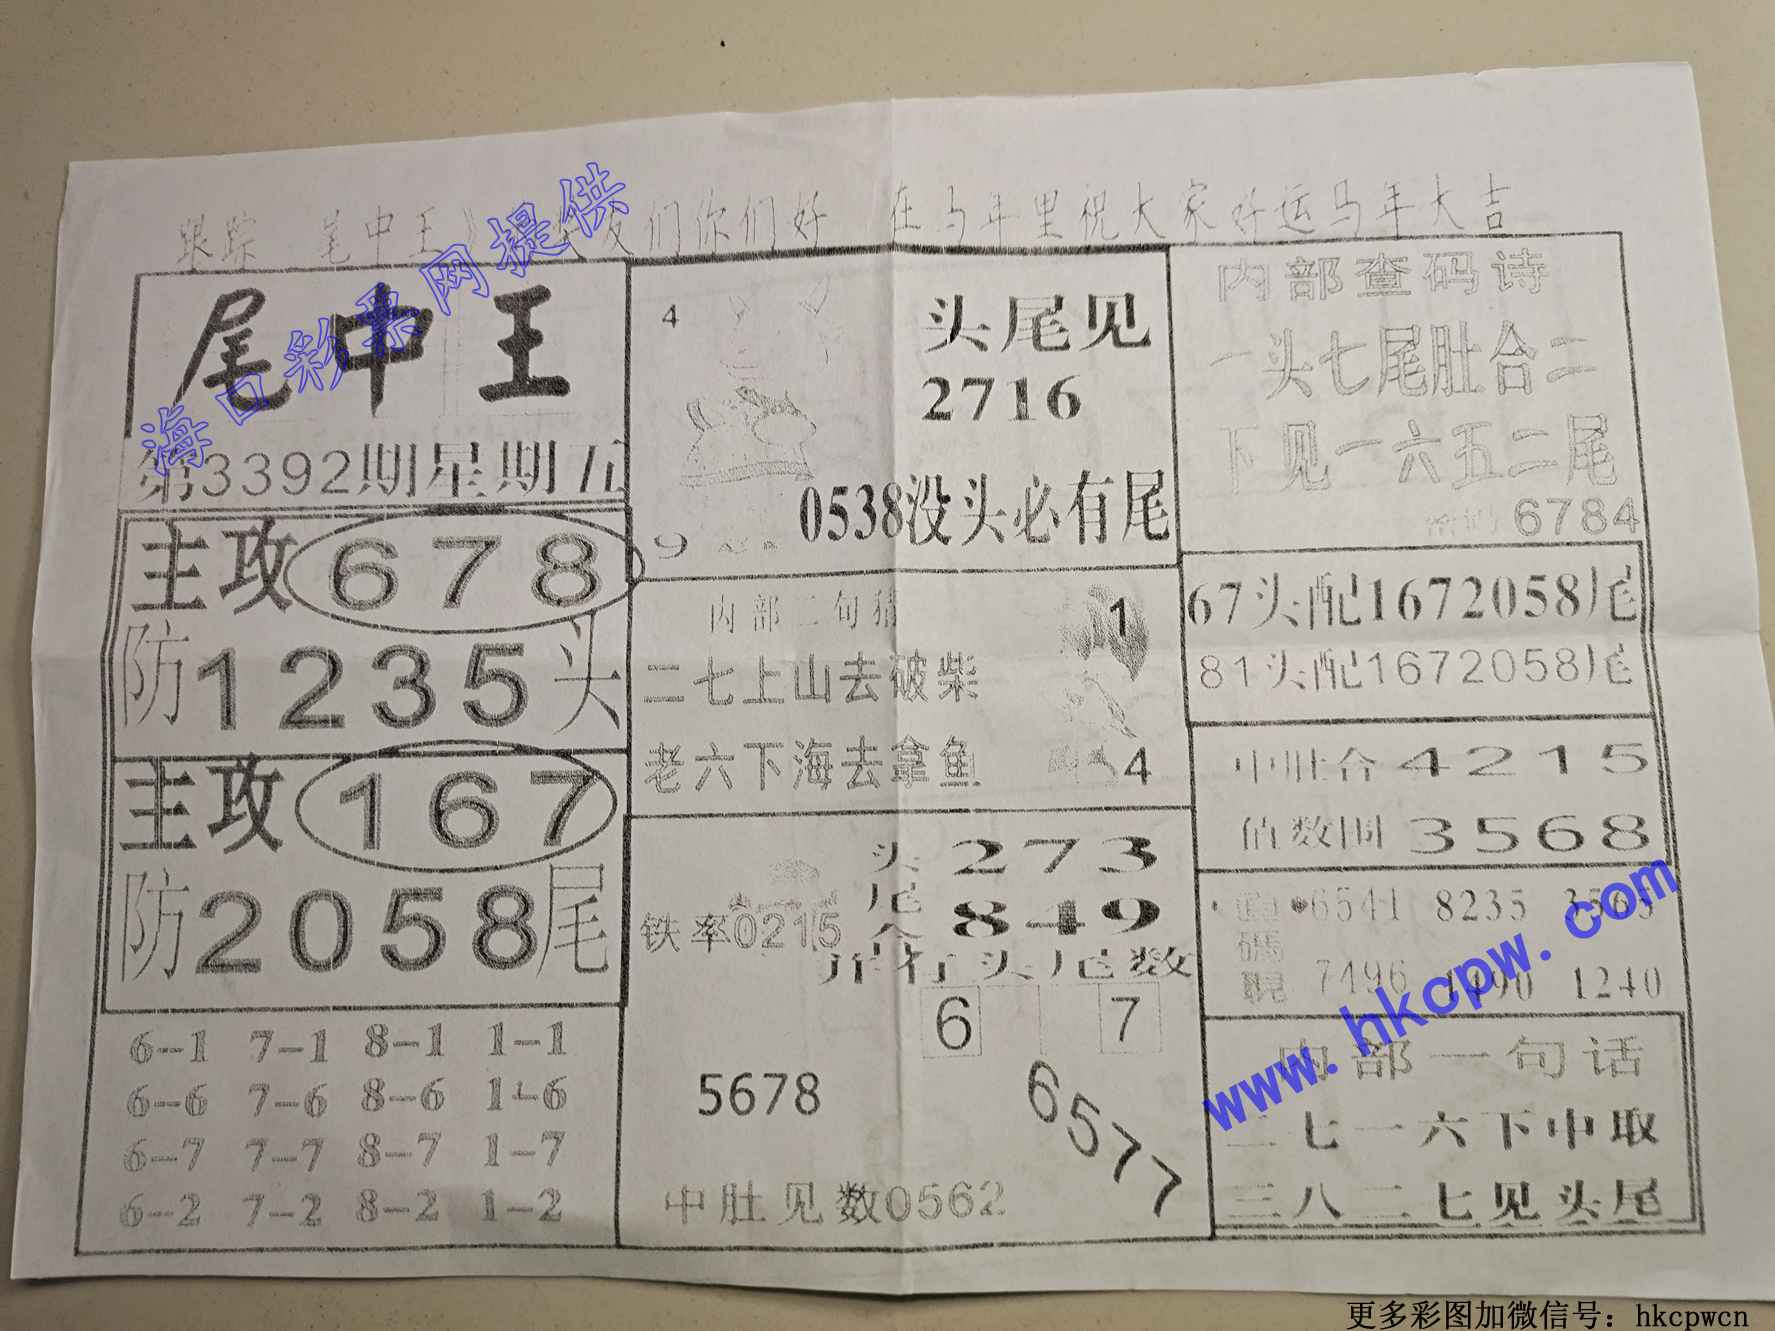 跟踪 尾中王》 友们你们好 在马年里祝大家好运马年大吉
海口彩票网提供
尾中王
第3392期星期五
主攻678
防1235头
主攻167
防2058尾
6-1 7-1 8-1 1-1
6-6 7-6 8-6 1-6
6-7 7-7 8-7 1-7
6-2 7-2 8-2 1-2
4
头尾见
2716
0538没头必有尾
9
内部二句猜
1
二七上山去破柴
老六下海去拿鱼
4
头 273
尾 849
合
铁率0215
并行头尾数
6 7
5678
6577
中肚见数0562
内部查码诗
一头七尾肚合二
下见一六五二尾
6784
67头配1672058尾
81头配1672058尾
中肚合4215
值数围3568
6541 8235 3565
碼
7496 1490 1240
www.hkcpw.com
内部一句话
二七一六下中取
三八二七见头尾
更多彩图加微信号：hkcpwcn